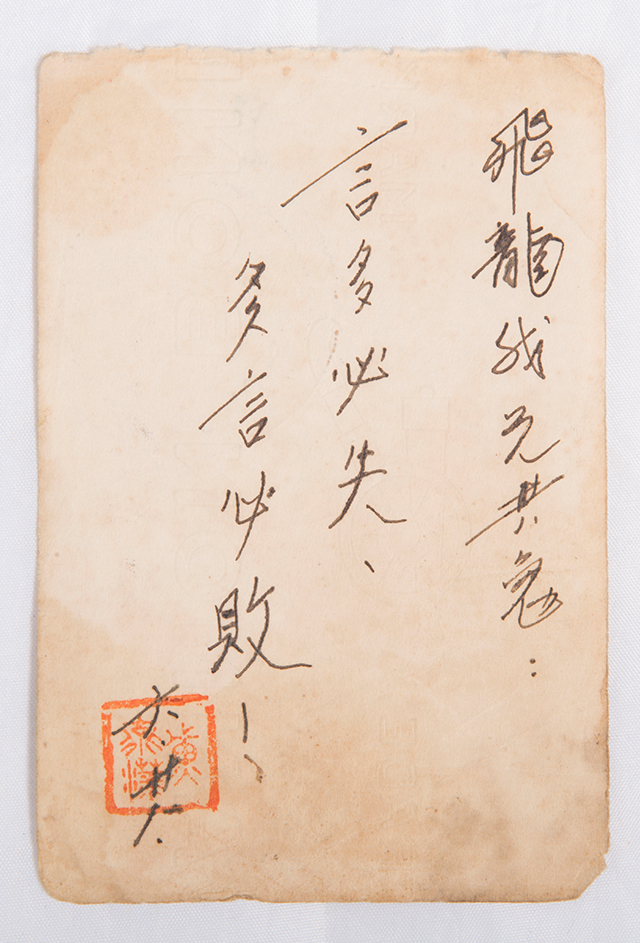 飛龍我兄共勉：
言多必失、
多言必敗！